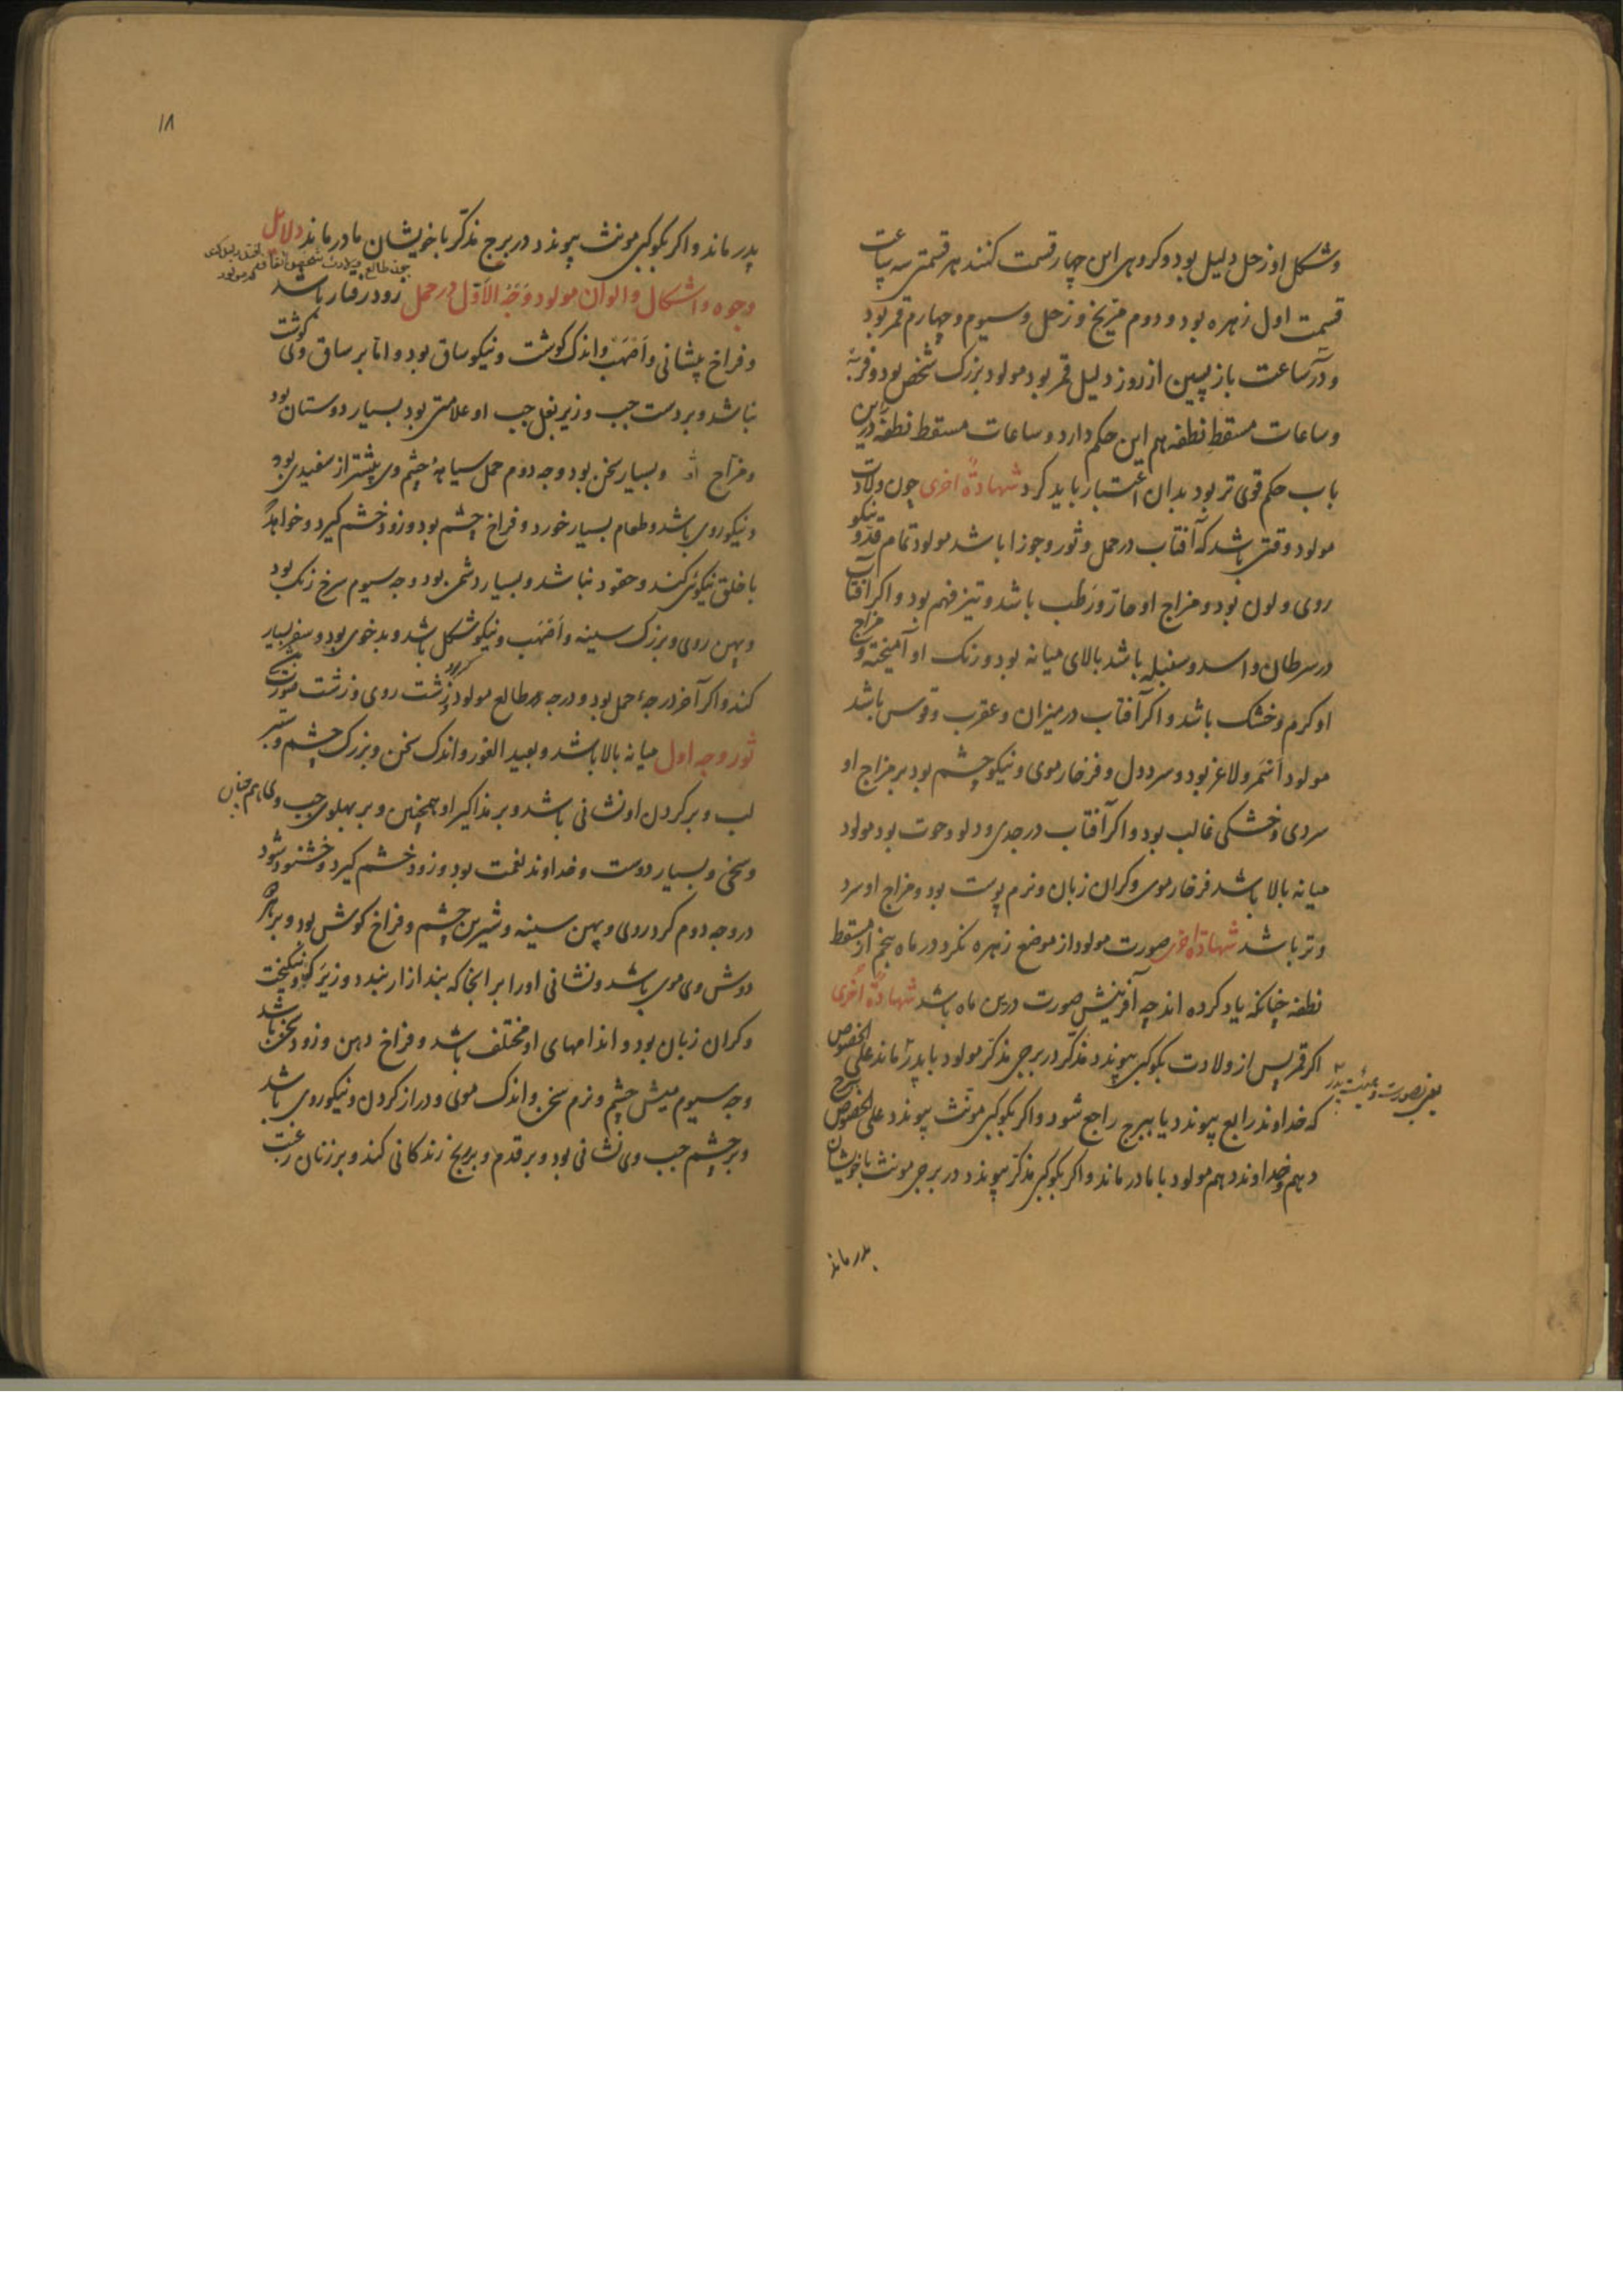 وشکل او زحل دلیل بود و کروهی این چهار قسمت کنند هر قسمتی سه ساعت
قسمت اول زهره بود و دوم مریخ و زحل و سیوم و چهارم قمر بود
و در ساعت بازپسین از روز دلیل قمر بود مولود بزرک شخص بود و فربه
و ساعات مسقط نطفه هم این حکم دارد و ساعات مسقط نطفه درین
باب حکم قوی تر بود بدان اعتبار باید کرد شهادة اخری چون ولادت
مولود وقتی باشد که آفتاب در حمل و ثور و جوزا باشد مولود تمام قد و نیکو
روی و لون بود و مزاج او حار و رطب باشد و تیز فهم بود و اکر آفتاب
در سرطان و اسد و سنبله باشد بالای میانه بود و رنک او آمیخته و مزاج
او کرم و خشک باشد و اکر آفتاب در میزان و عقرب و قوس باشد
مولود اسمر و لاغر بود و سرد دل و فرخار موی و نیکو چشم بود بر مزاج او
سردی و خشکی غالب بود و اکر آفتاب در جدی و دلو و حوت بود مولود
میانه بالا باشد فرخار موی و کران زبان و نرم پوست بود و مزاج او سرد
و تر باشد شهادة اخری صورت مولود از موضع زهره نکرد در ماه پنجم از مسقط
نطفه چنانکه یاد کرده اند چه آفرینش صورت درین ماه باشد شهادة اخری
اکر قمر پس از ولادت بکوکبی پیوندد مذکر در برجی مذکر مولود با پدر ماند علی الخصوص
یعنی بصورت و هیئت پدر
که خداوند رابع پیوندد یا ببرج راجع شود و اکر بکوکبی مونث پیوندد علی الخصوص برج
دهم و خداوند دهم مولود با مادر ماند و اکر بکوکبی مذکر پیوندد در برجی مونث با خویشان
پدر ماند
۱۸
پدر ماند و اکر بکوکبی مونث پیوندد در برج مذکر با خویشان مادر ماند دلایل
چون طالع ولادت شخص اتفاق
وجوه و اشکال و الوان مولود وجه الاول در حمل زود رفتار باشد
و فراخ پیشانی و اصهب و اندک کوشت و نیکو ساق بود و اما بر ساق وی کوشت
نباشد و بر دست چپ و زیر بغل چپ او علامتی بود بسیار دوستان بود
و مزاح و بسیار سخن بود وجه دوم حمل سیاهه چشم وی بیشتر از سفیدی بود
و نیکو روی باشد و طعام بسیار خورد و فراخ چشم بود و زود خشم کیرد و خواهد
با خلق نیکوئی کند و حقود نباشد و بسیار دشمن بود وجه سیوم سرخ رنک بود
و پهن روی و بزرک سینه و اصهب و نیکو شکل باشد و بد خوی بود و سفر بسیار
کند و اکر آخر درجهٔ حمل بود و درجه طالع مولود زشت روی و زشت صورت
ثور وجه اول میانه بالا باشد و بعید الغور و اندک سخن و بزرک چشم و ستبر
لب و بر کردن او نشانی باشد و بر مذاکیر او همچنین و بر پهلوی چپ وی هم چنان
و سخی و بسیار دوست و خداوند نعمت بود و زود خشم کیرد و خشنود شود
در وجه دوم کرد روی و پهن سینه و شیرین چشم و فراخ کوش بود و بر هر
دوش وی موی باشد و نشانی او را بر آنجا که بند ازار بندد و زیرک و نیکبخت
و کران زبان بود و اندامهای او مختلف باشد و فراخ دهن و زود سخن باشد
وجه سیوم میش چشم و نرم سخن و اندک موی و دراز کردن و نیکو روی باشد
و بر چشم چپ وی نشانی بود و بر قدم و برنج زندکانی کند و بر زنان رغبت